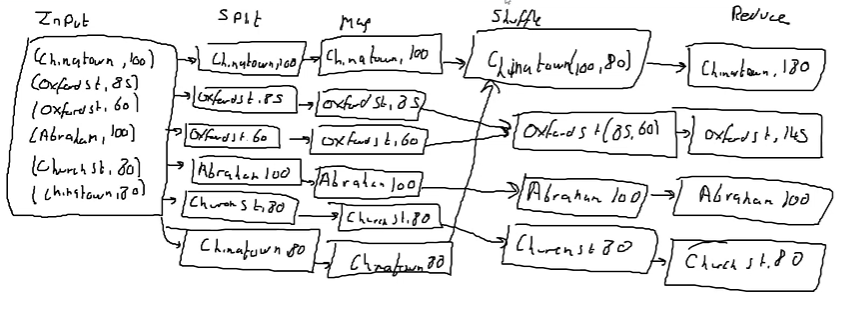 Input Split Map Shuffle Reduce
(Chinatown, 100)
(Oxford st, 85)
(Oxford st, 60)
(Abraham, 100)
(Church st, 80)
(Chinatown, 80)
Chinatown, 100
Oxford st, 85
Oxford st, 60
Abraham 100
Church st, 80
Chinatown 80
Chinatown, 100
Oxford st, 85
Oxford st, 60
Abraham 100
Church st, 80
Chinatown 80
Chinatown(100, 80)
Oxford st(85, 60)
Abraham 100
Church st 80
Chinatown, 180
Oxford st, 145
Abraham 100
Church st, 80